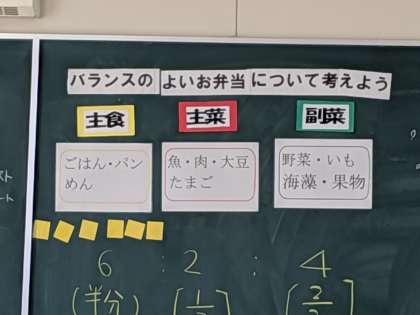 バランスの よいお弁当 について考えよう
主食
主菜
副菜
ごはん・パン
めん
魚・肉・大豆
たまご
野菜・いも
海藻・果物
6 : 2 : 4
(半分)